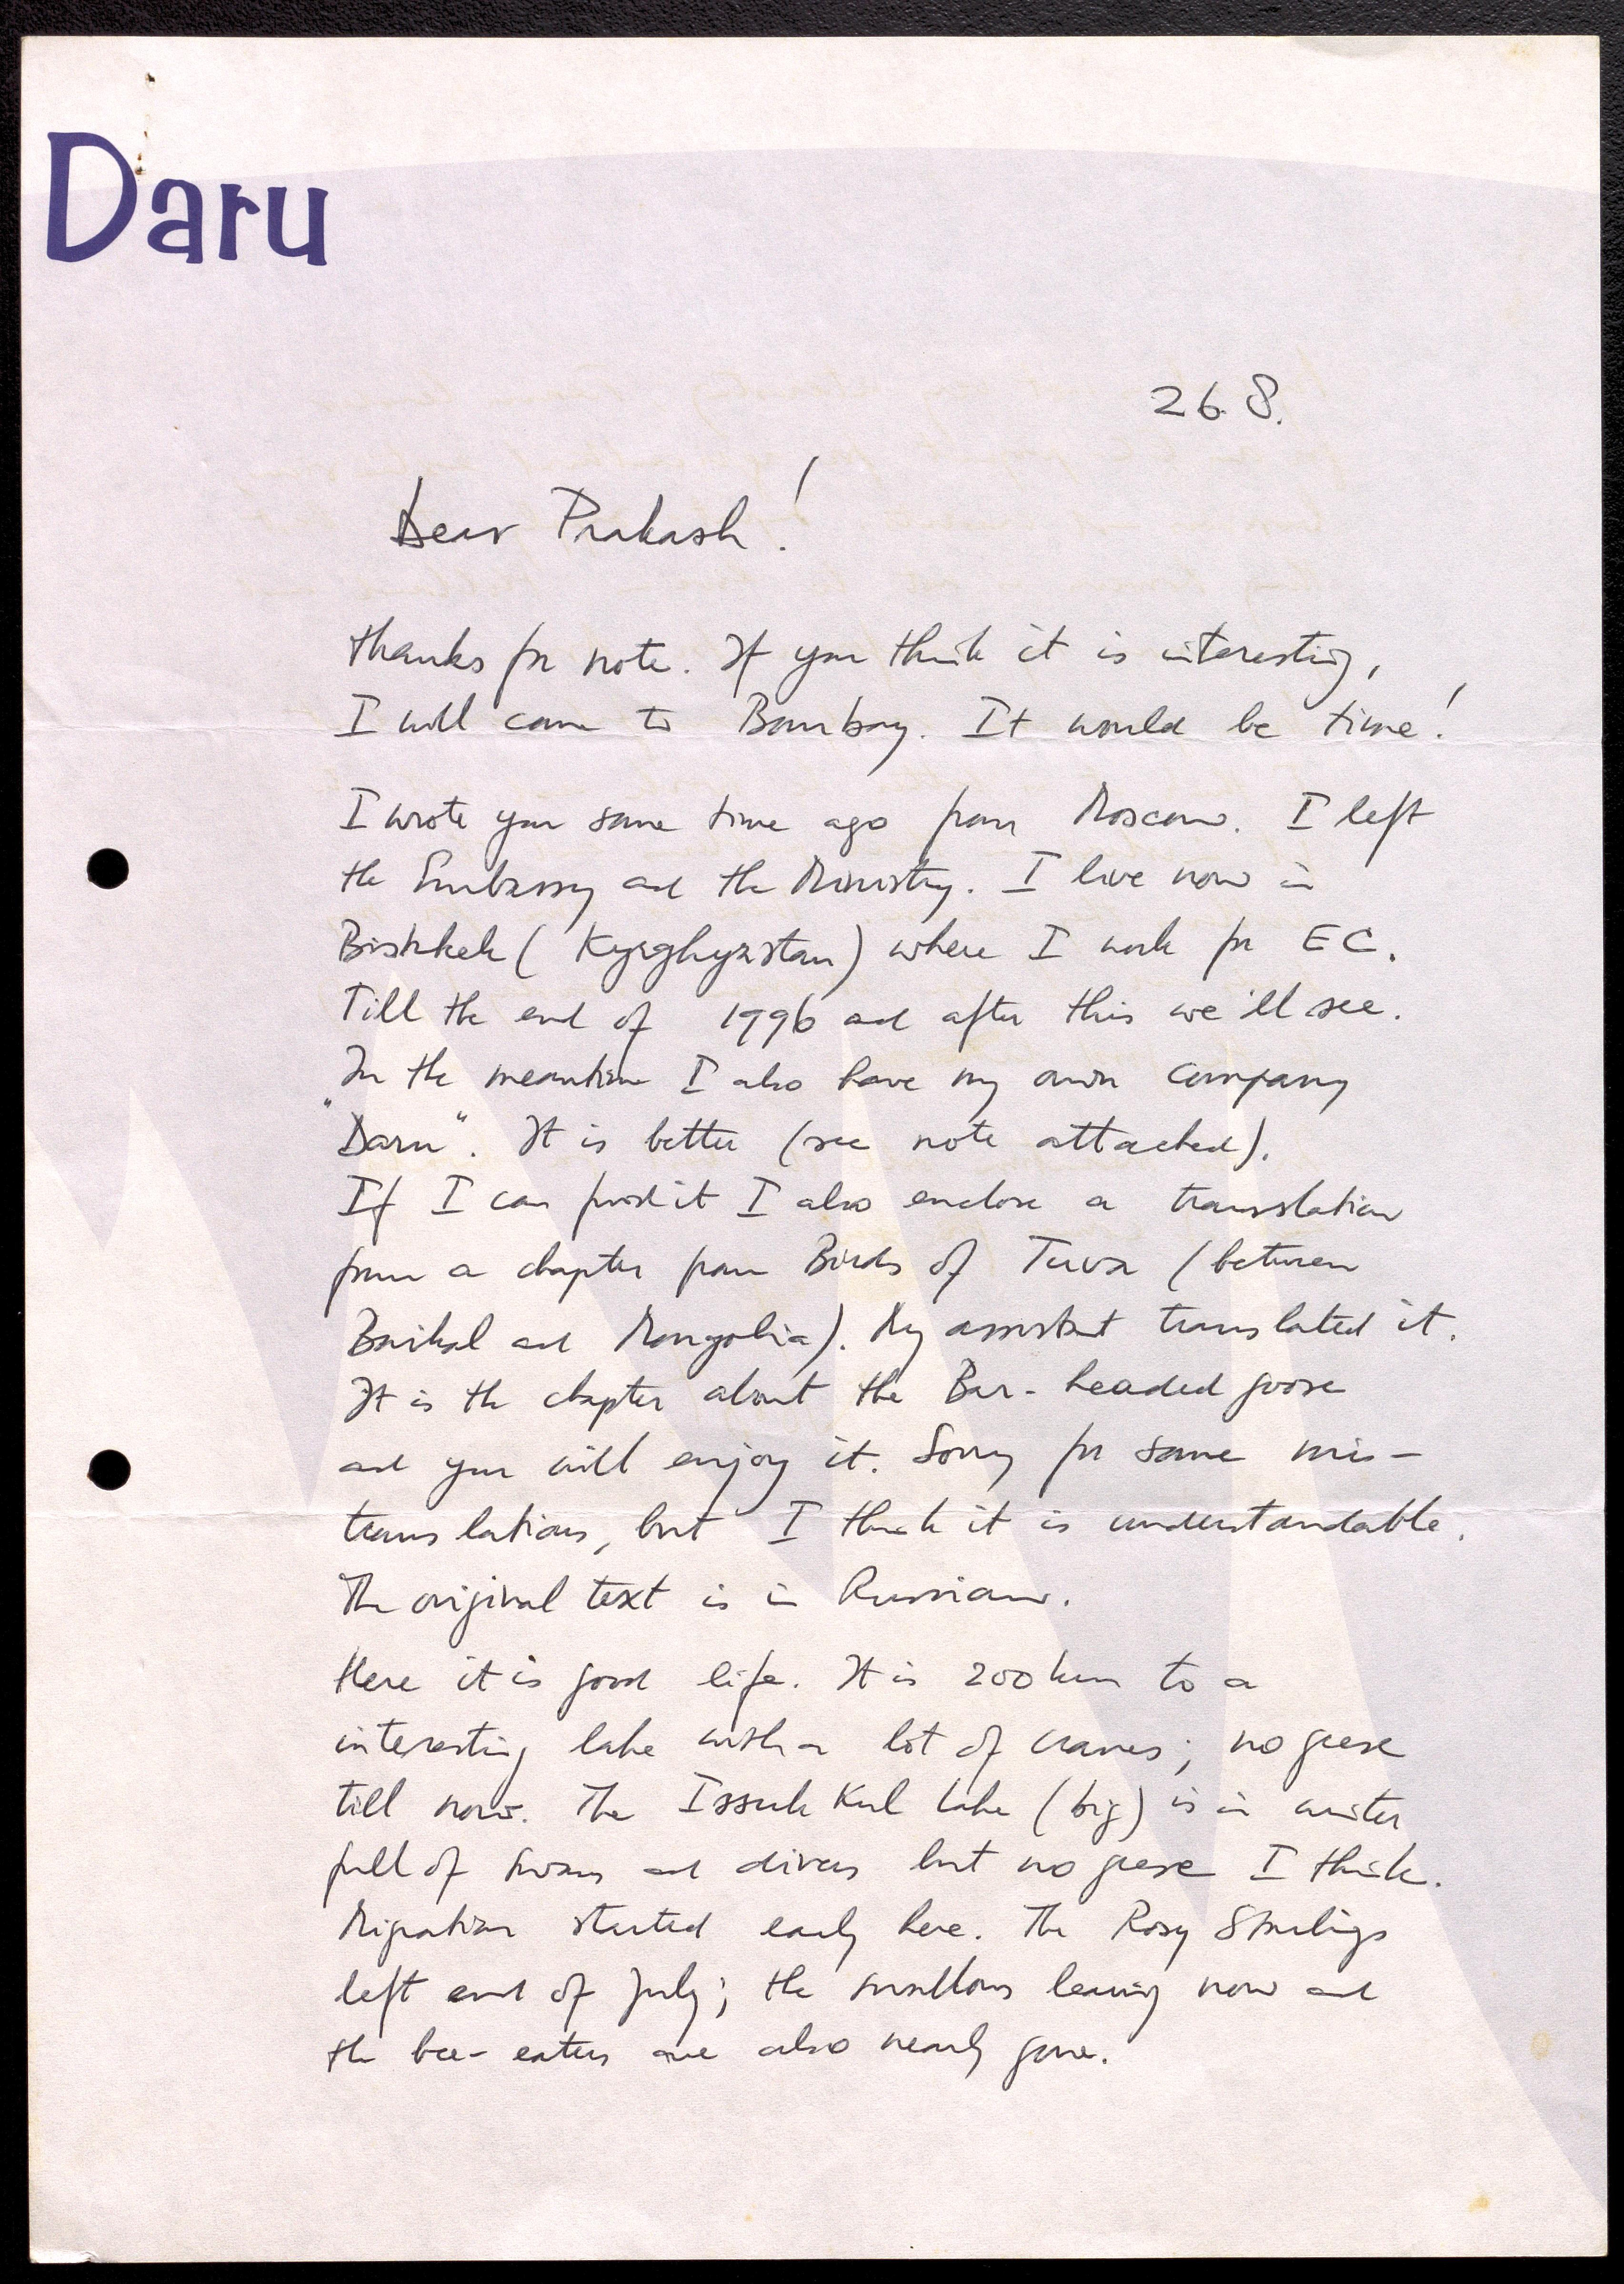 Daru
26.8.
Dear Prakash!
thanks for note. If you think it is interesting,
I will come to Bombay. It would be time!
I wrote you some time ago from Moscow. I left
the Embassy and the Ministry. I live now in
Bishkek (Kyrghyzstan) where I work for EC.
Till the end of 1996 and after this we'll see.
In the meantime I also have my own company
"Daru". It is better (see note attached).
If I can find it I also enclose a translation
from a chapter from Birds of Tuva (between
Baikal and Mongolia). My assistent translated it.
It is the chapter about the Bar-headed goose
and you will enjoy it. Sorry for some mis-
translations, but I think it is understandable.
The original text is in Russian.
Here it is good life. It is 200 km to a
interesting lake with a lot of cranes; no geese
till now. The Issuk Kul lake (big) is in winter
full of swans and divers but no geese I think.
Migration started early here. The Rosy Starlings
left end of July; the swallows leaving now and
the bee-eaters are also nearly gone.